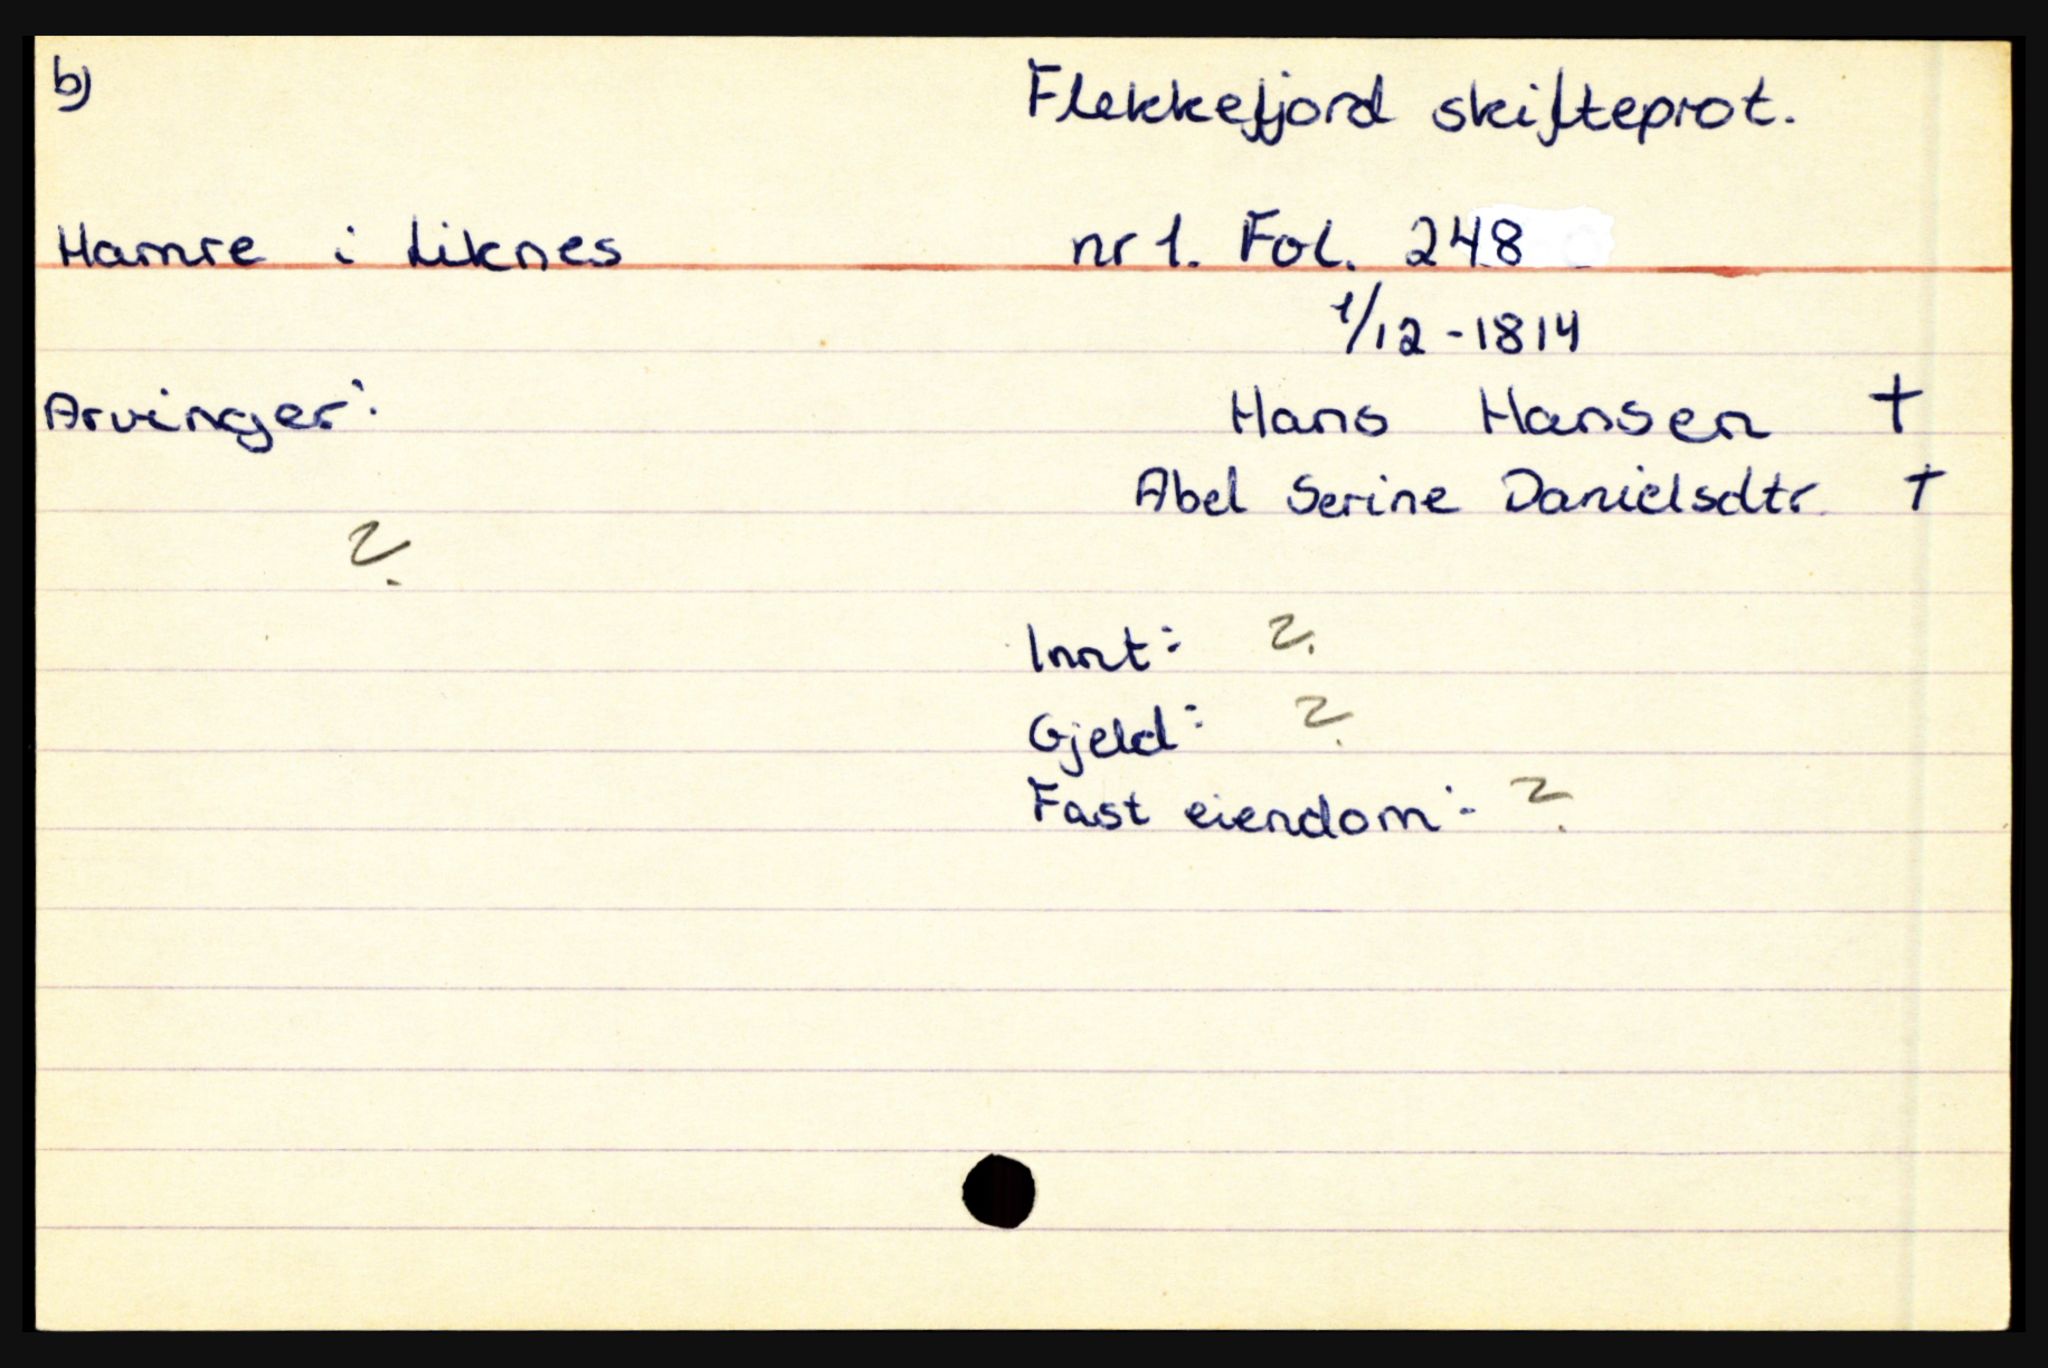 b)
Flekkefjord skifteprot.
Hamre i Liknes
nr 1. Fol. 248
1/12 - 1814
Arvinger:
Hans Hansen †
Abel Serine Danielsdtr. †
?
Innt: ?
Gjeld: ?
Fast eiendom: ?